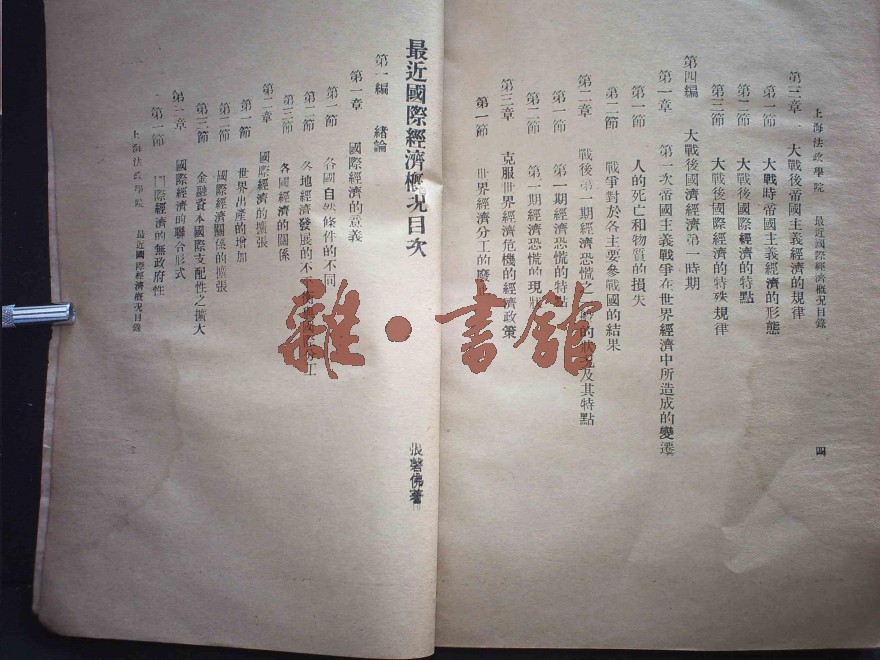 上海法政學院 最近國際經濟概況目錄 四
第三章 大戰後帝國主義經濟的規律
第一節 大戰時帝國主義經濟的形態
第二節 大戰後國際經濟的特點
第三節 大戰後國際經濟的特殊規律
第四編 大戰後國濟經濟第一時期
第一章 第一次帝國主義戰爭在世界經濟中所造成的變遷
第一節 人的死亡和物質的損失
第二節 戰爭對於各主要參戰國的結果
第二章 戰後第一期經濟恐慌之 的狀況及其特點
第一節 第一期經濟恐慌的特點
第二節 第一期經濟恐慌的現狀
第三章 克服世界經濟危機的經濟政策
第一節 世界經濟分工的廢
最近國際經濟概況目次
張馨佛著
第一編 緒論
第一章 國際經濟的意義
第一節 各國自然條件的不同
第二節 各地經濟發展的不 工
第三節 各國經濟的關係
第二章 國際經濟的擴張
第一節 世界出產的增加
第二節 國際經濟關係的擴張
第三節 金融資本國際支配性之擴大
第二章 國際經濟的聯合形式
第一節 際經濟的無政府性
上海法政學院 最近國際經濟概況目錄 一
雜·書館